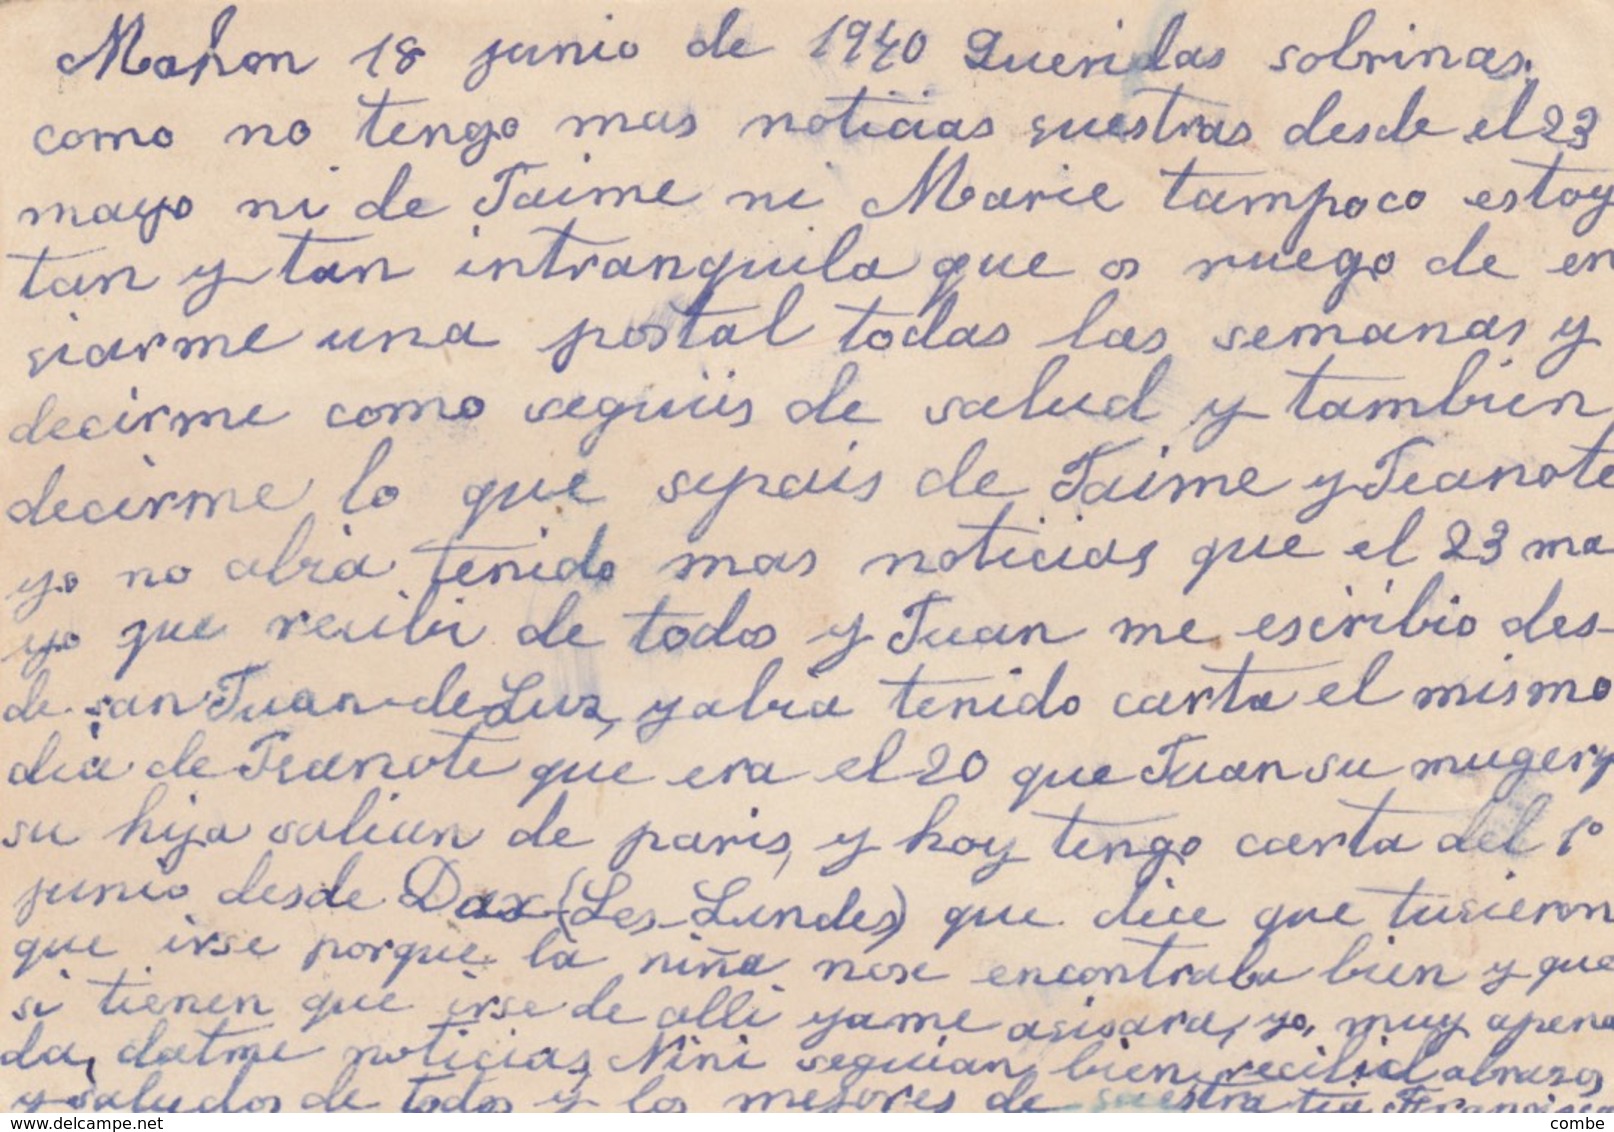 Mahon 18 junio de 1940 Queridas sobrinas.
como no tengo mas noticias suestras desde el 23
mayo ni de Jaime ni Marie tampoco estoy
tan y tan intranquila que os ruego de en
siarme una postal todas las semanas y
decirme como seguiis de salud y tambien
decirme lo que sepais de Jaime y Jeanote
yo no abia tenido mas noticias que el 23 ma
yo que recibi de todos y Juan me escribio des-
de san Juan de Luz, y abia tenido carta el mismo
dia de Jeanote que era el 20 que Juan su muger y
su hija salian de paris, y hoy tengo carta del 1º
junio desde Dax (Les Landes) que dice que tusieron
que irse porque la niña nose encontraba bien y que
si tienen que irse de alli yame asisara, yo, muy apena
da, datme noticias, Nini seguian bien, recibid abrazos
y saludos de todos y los mejores de suestra tia Francisca
www.delcampe.net
combe